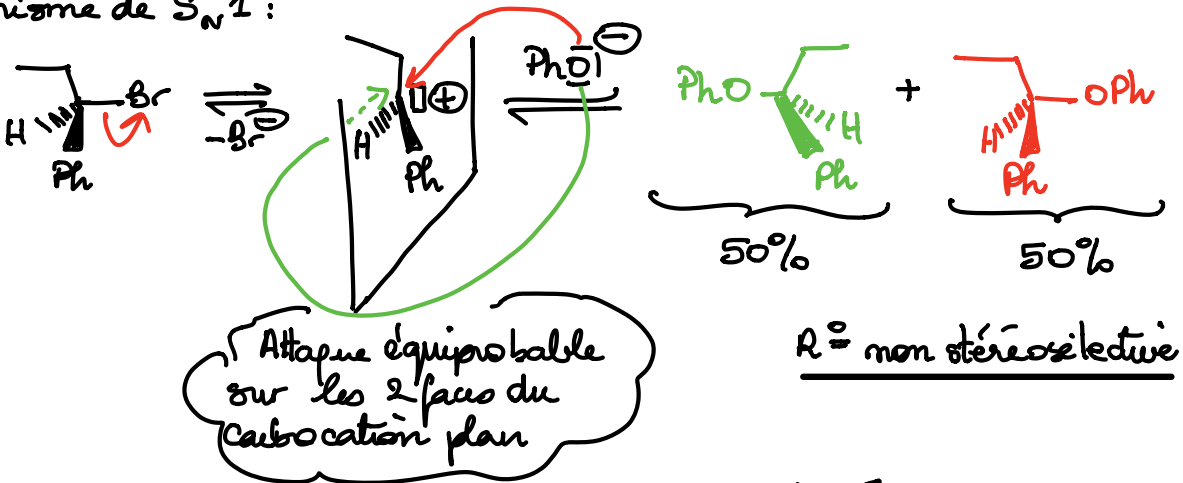 nisme de SN1 :
Br
H
Ph
-Br⊖
H
⊕
Ph
PhO| ⊖
PhO
H
Ph
+
OPh
H
Ph
50%
50%
Attaque équiprobable
sur les 2 faces du
carbocation plan
R° = non stéréosélective